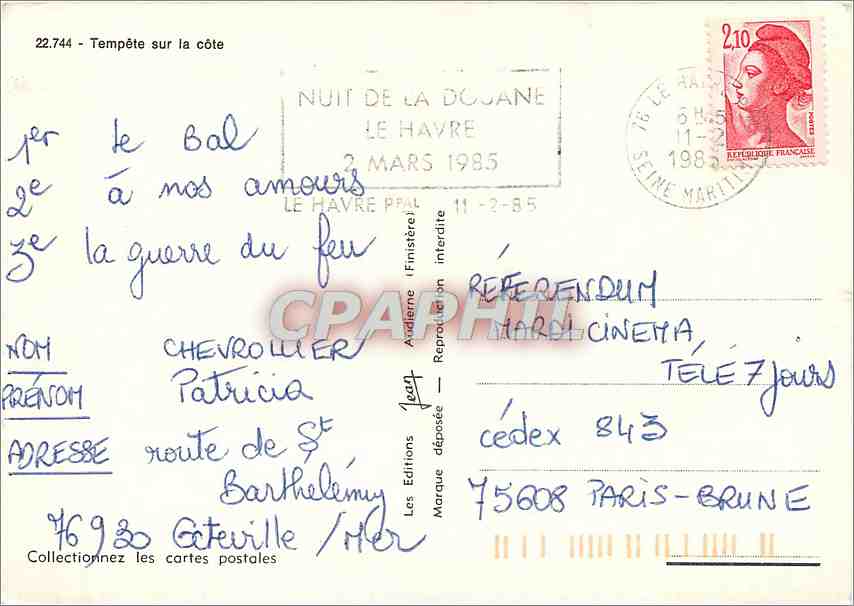 22.744 - Tempête sur la côte
NUIT DE LA DOUANE
LE HAVRE
2 MARS 1985
LE HAVRE PPAL 11-2-85
2,10
POSTES
RÉPUBLIQUE FRANÇAISE
76 LE HAV
11-2
1985
SEINE MARITI
1er le Bal
2e à nos amours
3e la guerre du feu
NOM CHEVROLLIER
PRÉNOM Patricia
ADRESSE route de St
Barthélémy
76930 Octeville /Mer
Collectionnez les cartes postales
Les Editions Jean Audierne (Finistère)
Marque déposée — Reproduction interdite
CPAPHIL
RÉFÉRENDUM
MARDI CINEMA,
TÉLÉ 7 Jours
cédex 843
75608 PARIS-BRUNE